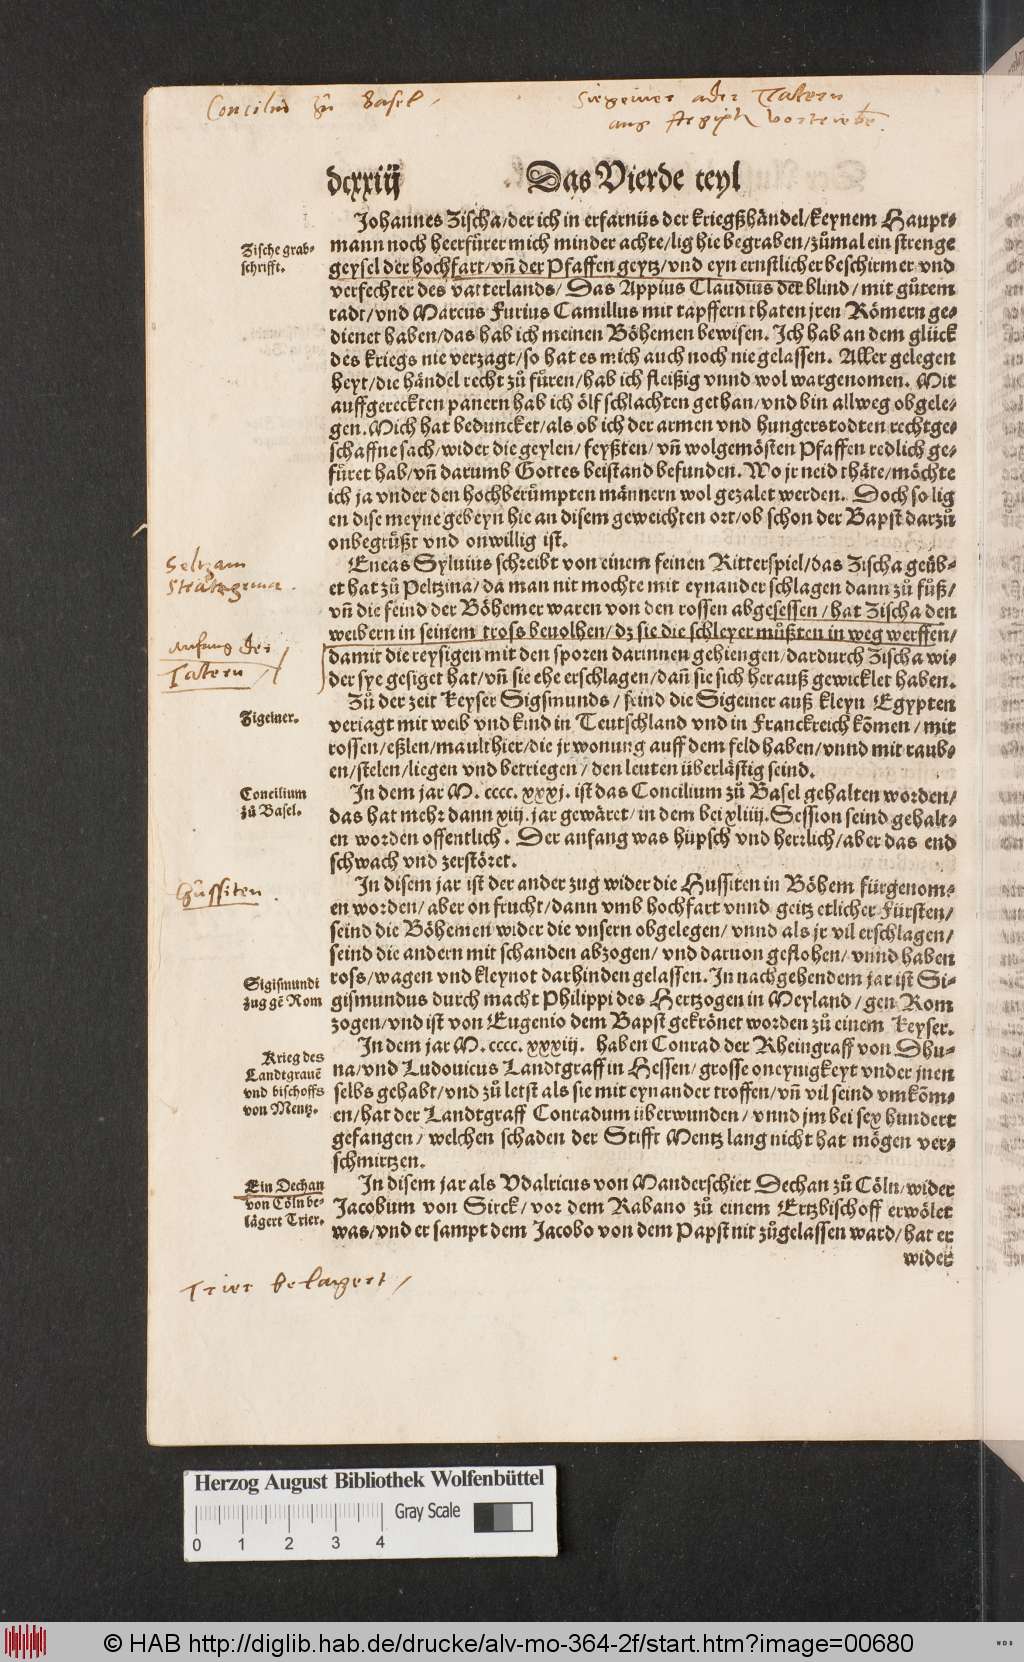 Concilium zů Basel
Siegeiner oder Tatern
aus Aegipt
dcxxiij
Das Vierde teyl
Johannes Zischa/der ich in erfarnüs der kriegßhändel/keynem Haupt⸗
mann noch heerfůrer mich minder achte/lig hie begraben/zůmal ein strenge
geysel der hochfart/vñ der Pfaffen geytz/vnd eyn ernstlicher beschirmer vnd
verfechter des vatterlands/ Das Appius Claudius der blind/mit gůtem
radt/vnd Marcus Furius Camillus mit tapffern thaten jren Römern ge⸗
dienet haben/das hab ich meinen Böhemen bewisen. Ich hab an dem glück
des kriegs nie verzagt/so hat es mich auch noch nie gelassen. Aller gelegen
heyt/die händel recht zů fůren/hab ich fleißig vnnd wol wargenomen. Mit
auffgereckten panern hab ich ölf schlachten gethan/vnd bin allweg obgele⸗
gen. Mich hat beduncket/als ob ich der armen vnd hungerstodten rechtge⸗
schaffne sach/wider die geylen/feyßten/vñ wolgemösten Pfaffen redlich ge⸗
fůret hab/vñ darumb Gottes beistand befunden. Wo jr neid thäte/möchte
ich ja vnder den hochberůmpten männern wol gezalet werden. Doch so lig
en dise meyne gebeyn hie an disem geweichten ort/ob schon der Bapst darzů
onbegrůßt vnd onwillig ist.
Zische grab⸗
schrifft.
Eneas Syluius schreibt von einem feinen Ritterspiel/das Zischa geüb⸗
et hat zů Peltzina/da man nit mochte mit eynander schlagen dann zů fůß/
vñ die feind der Böhemer waren von den rossen abgesessen/hat Zischa den
weibern in seinem tross beuolhen/dz sie die schleyer můßten in weg werffen/
damit die reysigen mit den sporen darinnen gehiengen/dardurch Zischa wi⸗
der sye gesiget hat/vñ sie ehe erschlagen/dañ sie sich herauß gewicklet haben.
Seltzam
Strategema
anfang der
Tatern
Zů der zeit Keyser Sigsmunds/seind die Sigeiner auß kleyn Egypten
veriagt mit weib vnd kind in Teutschland vnd in Franckreich kõmen/mit
rossen/eßlen/maulthier/die jr wonung auff dem feld haben/vnnd mit raub⸗
en/stelen/liegen vnd betriegen/den leuten überlästig seind.
Zigeiner.
In dem jar M. cccc. xxxj. ist das Concilium zů Basel gehalten worden/
das hat mehr dann xiij. jar gewäret/in dem bei xliiij. Session seind gehalt⸗
en worden offentlich. Der anfang was hüpsch vnd herrlich/aber das end
schwach vnd zerstöret.
Concilium
zů Basel.
In disem jar ist der ander zug wider die Hussiten in Böhem fürgenom⸗
en worden/aber on frucht/dann vmb hochfart vnnd geitz etlicher Fürsten/
seind die Böhemen wider die vnsern obgelegen/vnnd als jr vil erschlagen/
seind die andern mit schanden abzogen/vnd daruon geflohen/vnnd haben
ross/wagen vnd kleynot darhinden gelassen. In nachgehendem jar ist Si⸗
gismundus durch macht Philippi des Hertzogen in Meyland/gen Rom
zogen/vnd ist von Eugenio dem Bapst gekrönet worden zů einem Keyser.
Hussiten
Sigismundi
zug gẽ Rom
In dem jar M. cccc. xxxiij. haben Conrad der Rheingraff von Dhu⸗
na/vnd Ludouicus Landtgraff in Hessen/grosse oneynigkeyt vnder jnen
selbs gehabt/vnd zů letst als sie mit eynander troffen/vñ vil seind vmkõm⸗
en/hat der Landtgraff Conradum überwunden/vnnd jm bei sex hundert
gefangen/welchen schaden der Stifft Mentz lang nicht hat mögen ver⸗
schmirtzen.
Krieg des
Landtgrauẽ
vnd bischoffs
von Mentz.
In disem jar als Vdalricus von Manderschiet Dechan zů Cöln/wider
Jacobum von Sirck/vor dem Rabano zů einem Ertzbischoff erwölet
was/vnd er sampt dem Jacobo von dem Papst nit zůgelassen ward/hat er
wider
Ein Dechan
von Cöln be⸗
lägert Trier.
Trier belagert
Herzog August Bibliothek Wolfenbüttel
Gray Scale
0 1 2 3 4
© HAB http://diglib.hab.de/drucke/alv-mo-364-2f/start.htm?image=00680